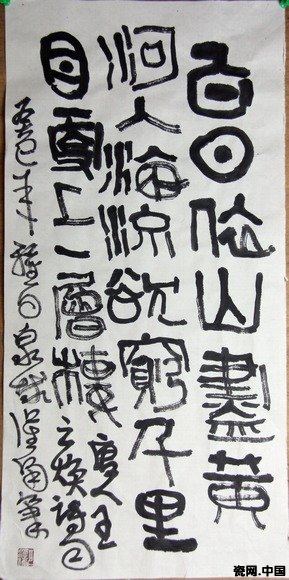 白日依山盡黄
河入海流欲窮千里
目更上一層樓
唐人王
之焕詩句
年日泉城筆
瓷网.中国